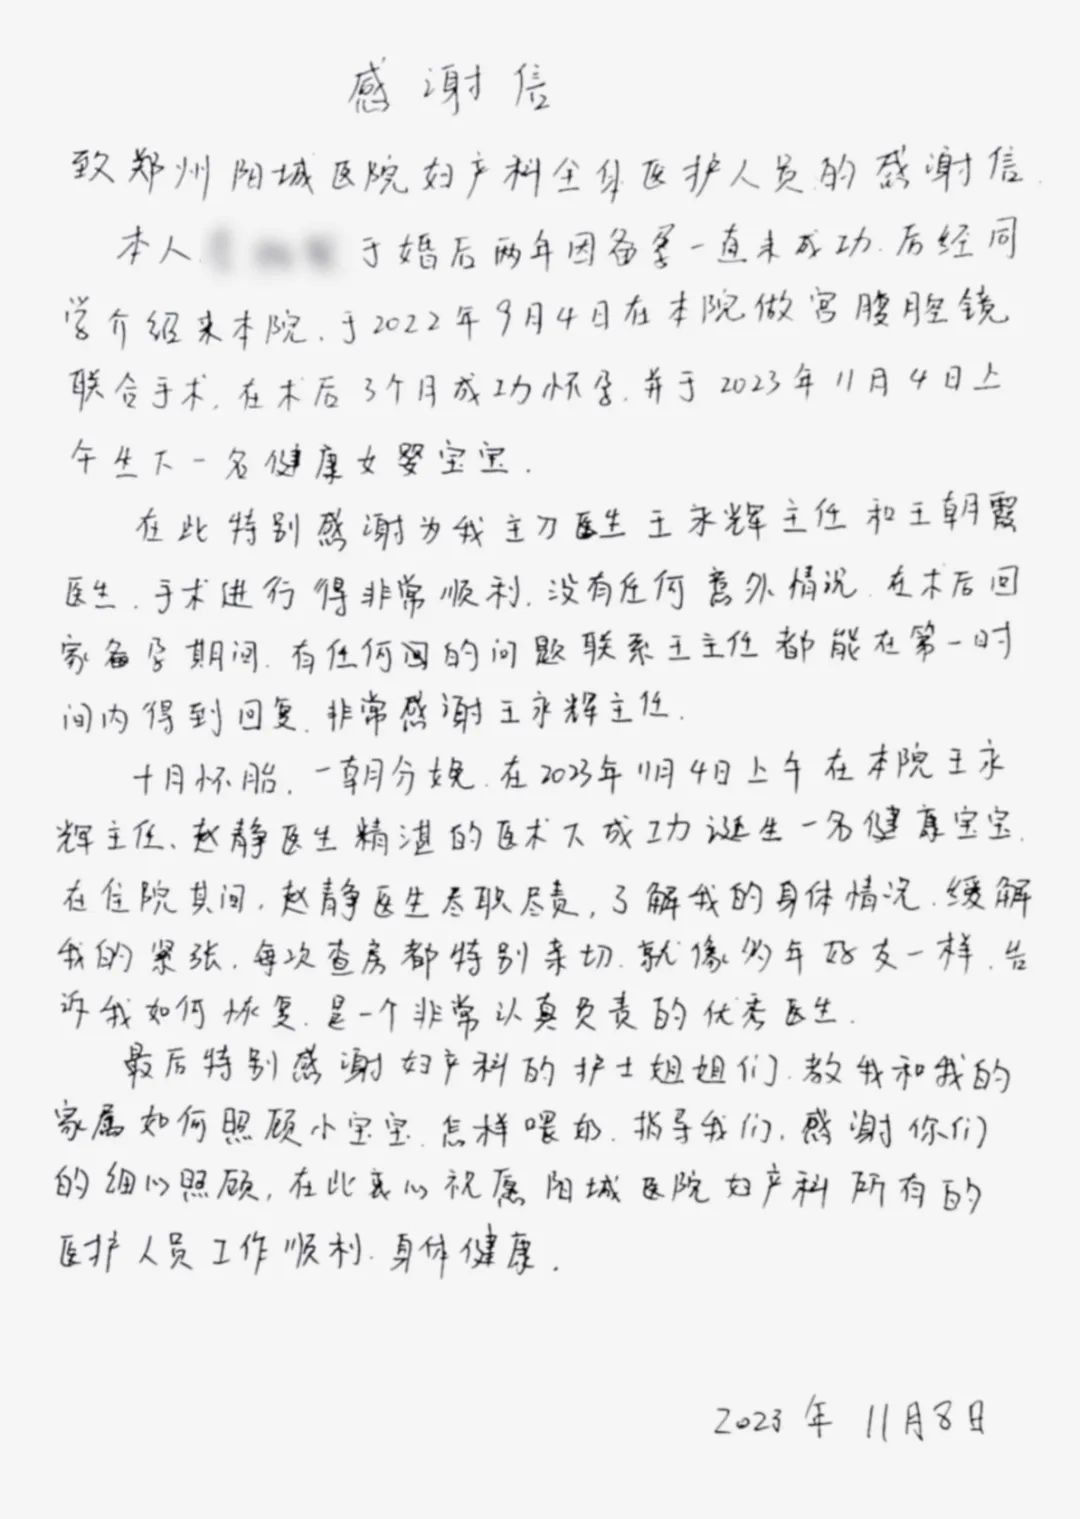 感谢信
致郑州阳城医院妇产科全体医护人员的感谢信.
本人 于婚后两年因备孕一直未成功.后经同
学介绍来本院.于2022年9月4日在本院做宫腹腔镜
联合手术.在术后3个月成功怀孕.并于2023年11月4日上
午生下一名健康女婴宝宝.
在此特别感谢为我主刀医生王永辉主任和王朝霞
医生.手术进行得非常顺利.没有任何意外情况.在术后回
家备孕期间.有任何的问题联系王主任都能在第一时
间内得到回复.非常感谢王永辉主任.
十月怀胎.一朝分娩.在2023年11月4日上午在本院王永
辉主任、赵静医生精湛的医术下成功诞生一名健康宝宝.
在住院其间.赵静医生尽职尽责.了解我的身体情况.缓解
我的紧张.每次查房都特别亲切.就像多年好友一样.告
诉我如何恢复.是一个非常认真负责的优秀医生.
最后特别感谢妇产科的护士姐姐们.教我和我的
家属如何照顾小宝宝.怎样喂奶.指导我们.感谢你们
的细心照顾.在此衷心祝愿阳城医院妇产科所有的
医护人员工作顺利.身体健康.
2023年11月8日